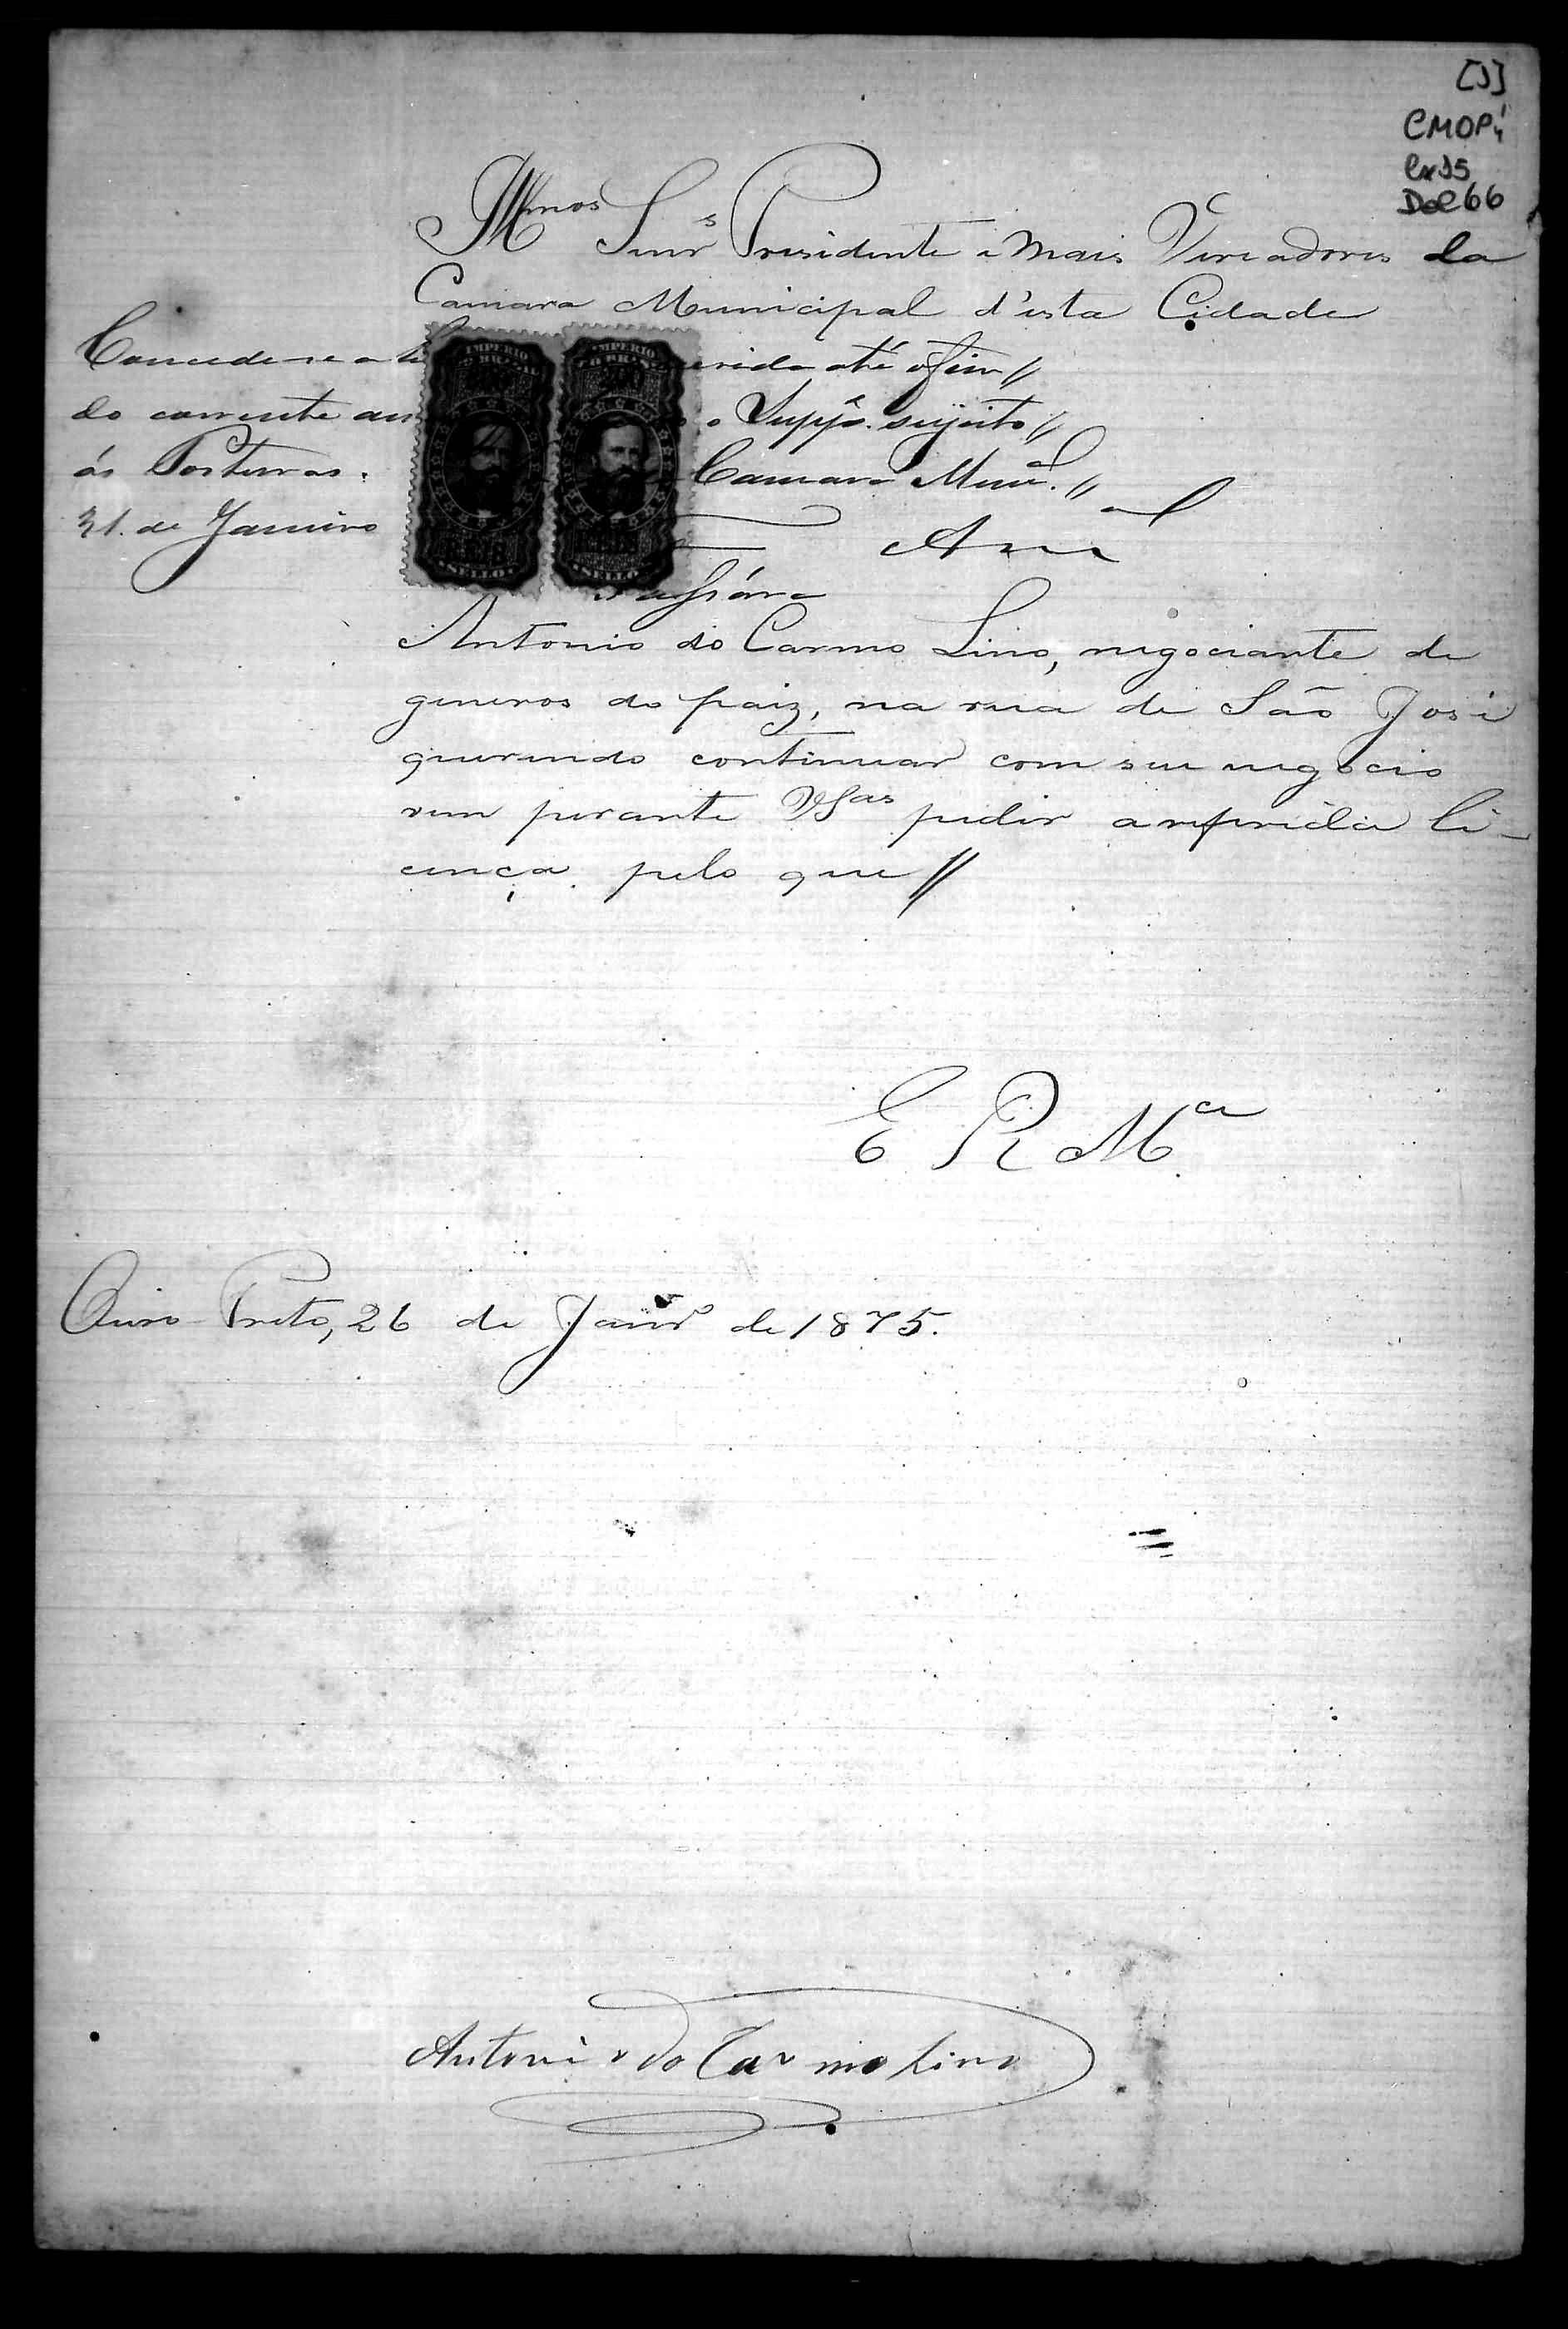 [J]
CMOP
Cx 35
Doc 66
Illmos Snrs Presidente e mais Vereadores da
Camara Municipal d'esta Cidade
Concede-se a li erida até o fim //
do corrente an o Suppe. sujeito //
ás Posturas. Camara Munal. //
31. de Janeiro
IMPERIO DO BRAZIL
200
REIS
SELLO
IMPERIO DO BRAZIL
200
REIS
SELLO
Antonio do Carmo Lino, negociante de
generos do paiz, na rua de São José
querendo continuar com seu negocio
vem perante VSas pedir a referida li-
cença pelo que //
E R Mca
Ouro-Preto, 26 de Janro de 1875.
Antonio do Carmo Lino